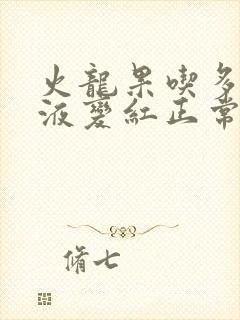 火龍果喫多
液變紅正常
脩七